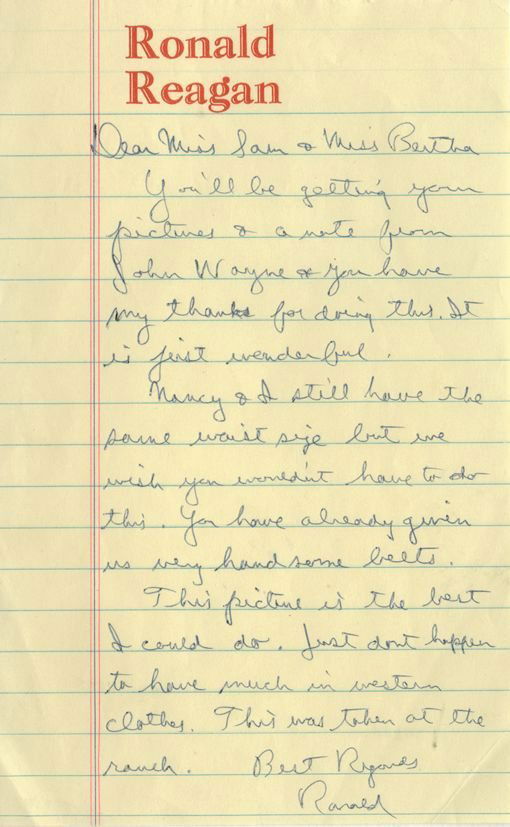 Ronald
Reagan
Dear Miss Sam & Miss Bertha
You'll be getting your
pictures & a note from
John Wayne & you have
my thanks for doing this. It
is just wonderful.
Nancy & I still have the
same waist size but we
wish you wouldn't have to do
this. You have already given
us very handsome belts.
This picture is the best
I could do. Just dont happen
to have much in western
clothes. This was taken at the
ranch. Best Regards
Ronald